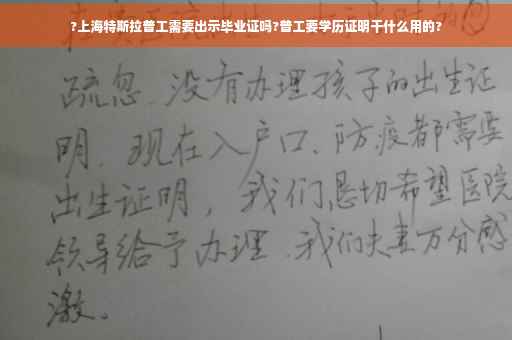 ?上海特斯拉普工需要出示毕业证吗?普工要学历证明干什么用的?
疏忽、没有办理孩子的出生证
明、现在入户口、防疫都需要
出生证明，我们恳切希望医院
领导给予办理、我们夫妻万分感
激。